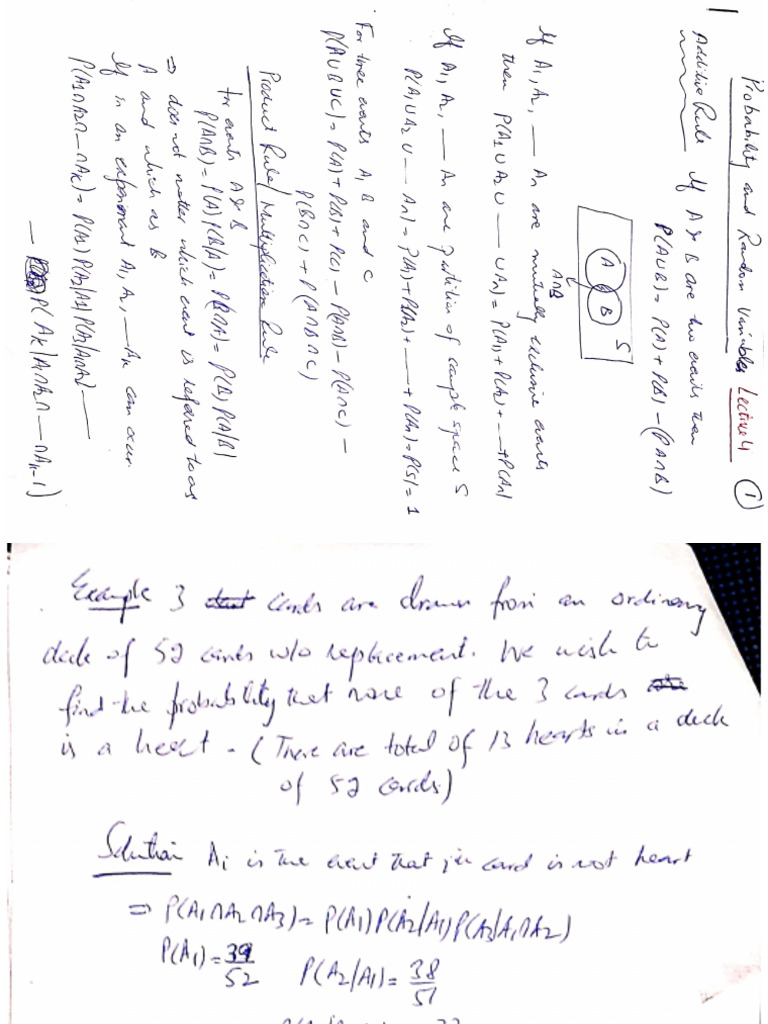 Probability and Random Variables Lecture 4 ①
Additive Rule If A & B are two events then
P(A∪B) = P(A) + P(B) - (P A∩B)
S
A B
A∩B
If A1, A2, — An are mutually exclusive events
then P(A1 ∪ A2 ∪ --- ∪ An) = P(A1) + P(A2) + --- + P(An)
If A1, A2, — An are partition of sample space S
P(A1 ∪ A2 ∪ --- An) = P(A1) + P(A2) + --- + P(An) = P(S) = 1
For three events A, B and C
P(A∪B∪C) = P(A) + P(B) + P(C) - P(A∩B) - P(A∩C) -
P(B∩C) + P(A∩B∩C)
Product Rule / Multiplication Rule
For events A & B
P(A∩B) = P(A) P(B/A) = P(B∩A) = P(B) P(A/B)
⇒ does not matter which event is referred to as
A and which as B
If in an experiment A1, A2, — Ak can occur
P(A1∩A2∩ --- ∩Ak) = P(A1) P(A2/A1) P(A3/A1∩A2) ---
--- P(Ak/A1∩A2∩ --- ∩Ak-1)
Example 3 cards are drawn from an ordinary
deck of 52 cards w/o replacement. We wish to
find the probability that none of the 3 cards
is a heart. (There are total of 13 hearts in a deck
of 52 cards)
Solution Ai is the event that ith card is not heart
⇒ P(A1∩A2∩A3) = P(A1) P(A2/A1) P(A3/A1∩A2)
P(A1) = 39/52 P(A2/A1) = 38/51